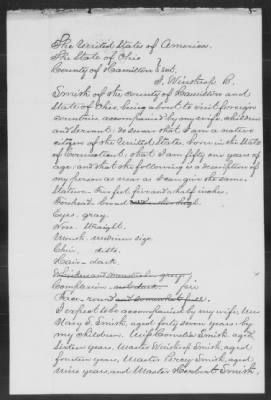 The United States of America.
The State of Ohio }
County of Hamilton } ss.
I, Winthrop B.
Smith of the County of Hamilton and
State of Ohio, being about to visit foreign
countries accompanied by my wife, children
and servant: do swear that I am a native
citizen of the United States, born in the State
of Connecticut, that I am fifty one years of
age, and that the following is a description of
my person as near as I can give the same.
Stature five feet five and a half inches.
Forehead. broad
Eyes. gray.
Nose. Straight.
Mouth. medium size
Chin. ditto.
Hair. dark
Whiskers and moustaches gray,
Complexion and dark. fair
Face. round and somewhat full.
I expect to be accompanied by my wife, Mrs
Mary S. Smith, aged forty seven years; by
my children, Miss Cornelia Smith, aged
sixteen years, Master Winthrop Smith, aged
fourteen years, Master Percy Smith, aged
nine years, and Master Herbert Smith,